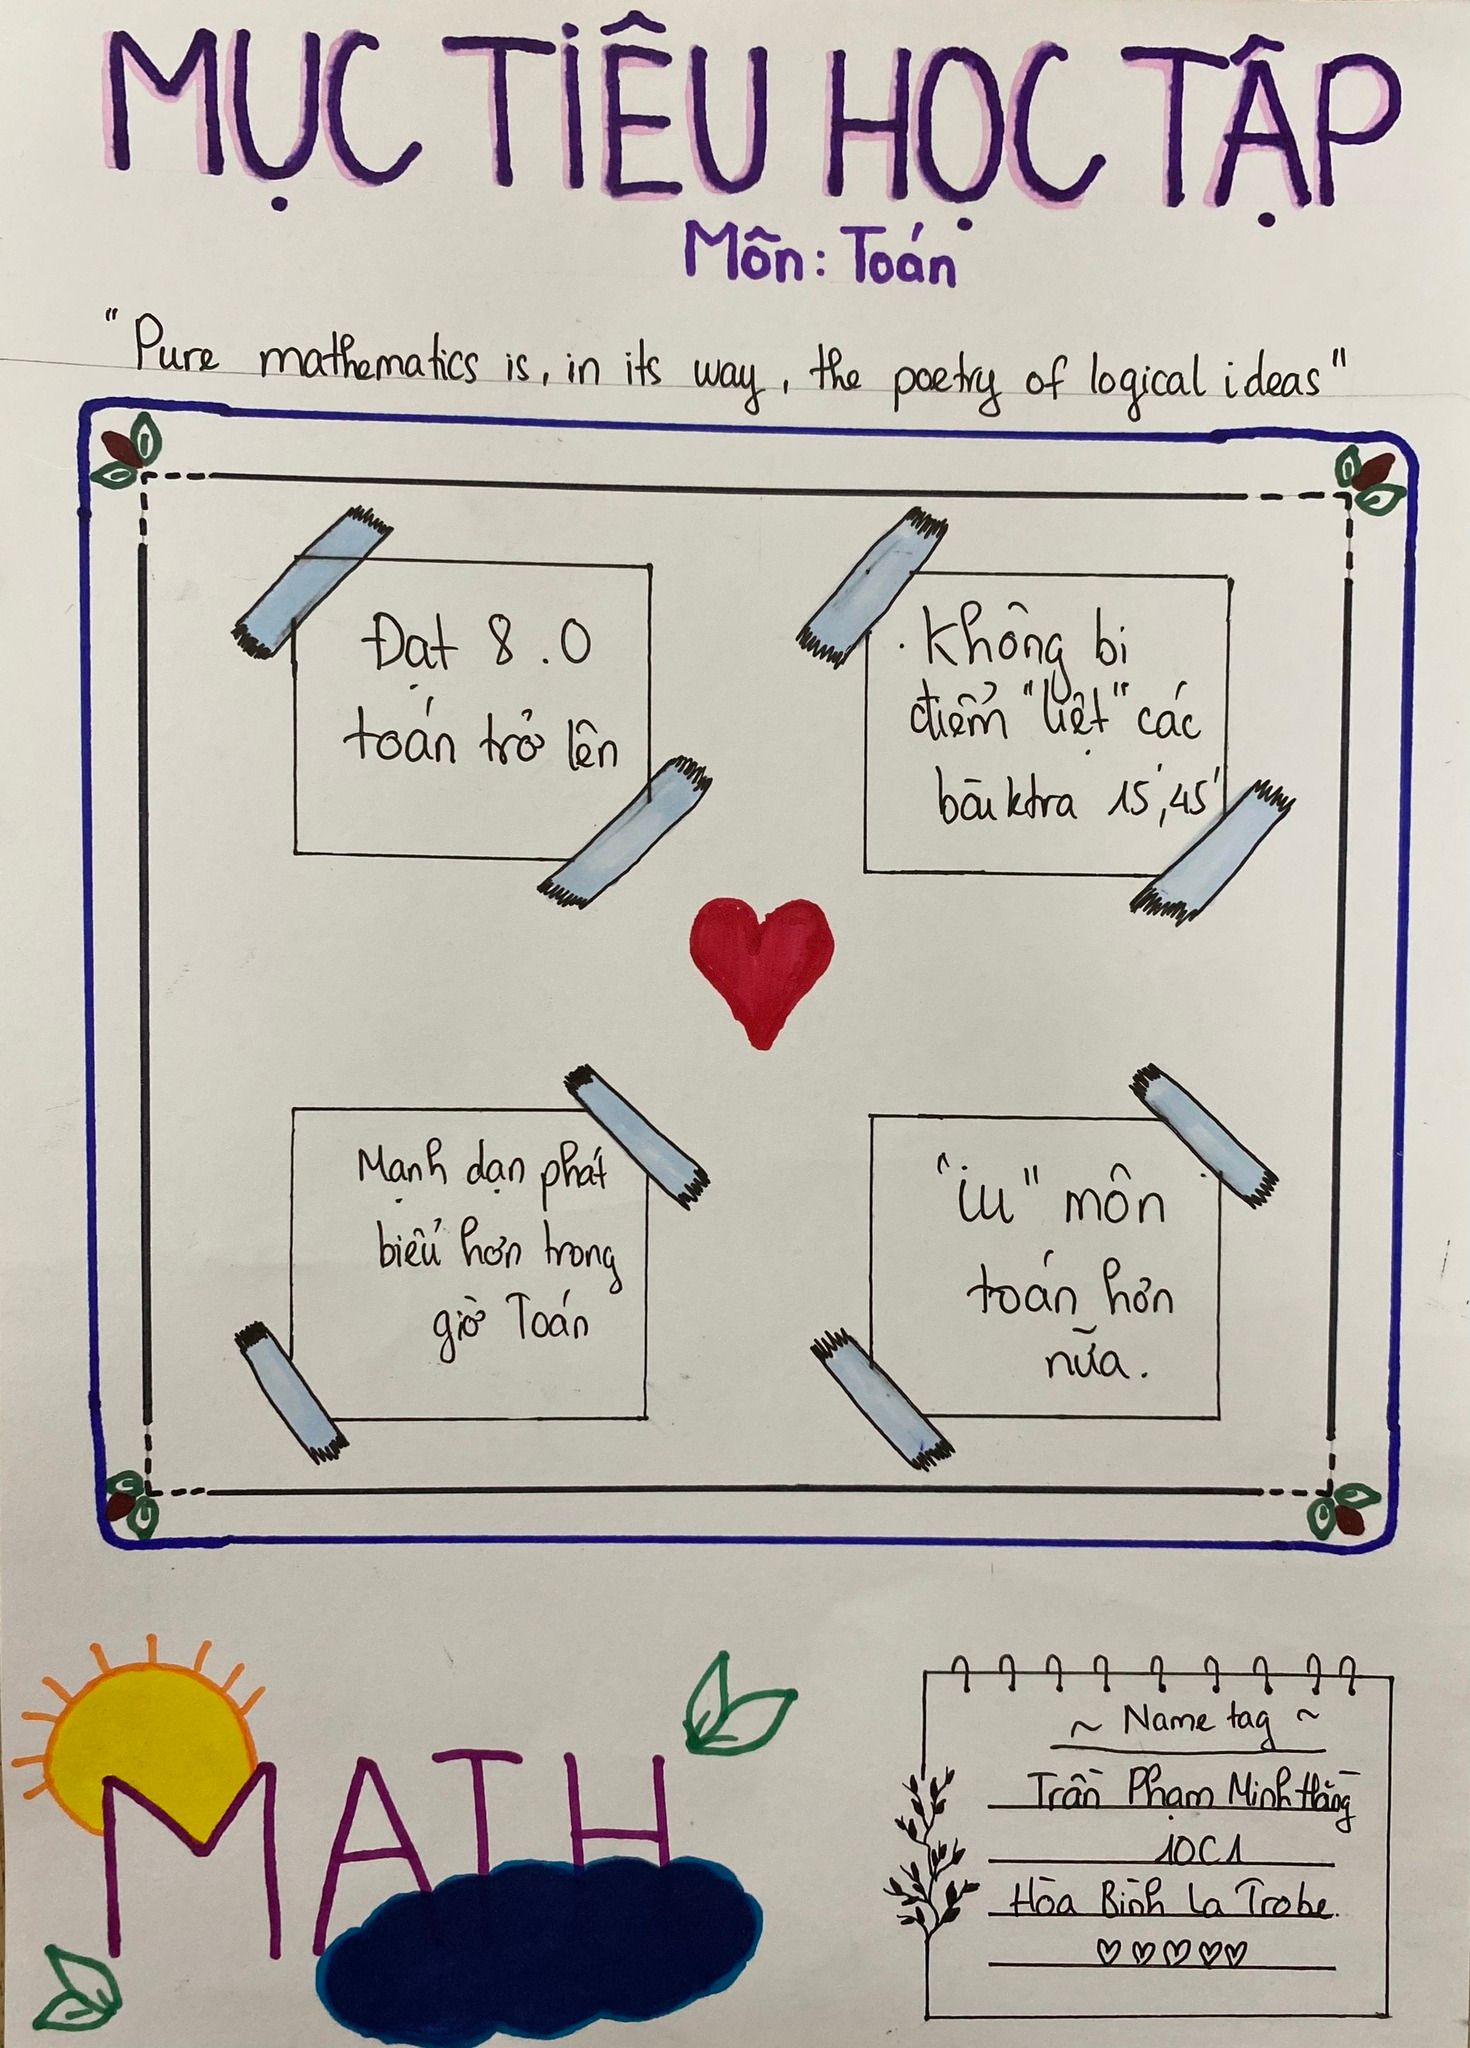 MỤC TIÊU HỌC TẬP
Môn: Toán
"Pure mathematics is, in its way, the poetry of logical ideas"
Đạt 8.0
toán trở lên
. Không bị
điểm "liệt" các
bài ktra 15', 45'
Mạnh dạn phát
biểu hơn trong
giờ Toán
"iu" môn
toán hơn
nữa.
MATH
~ Name tag ~
Trần Phạm Minh Hằng
10C1
Hòa Bình La Trobe.